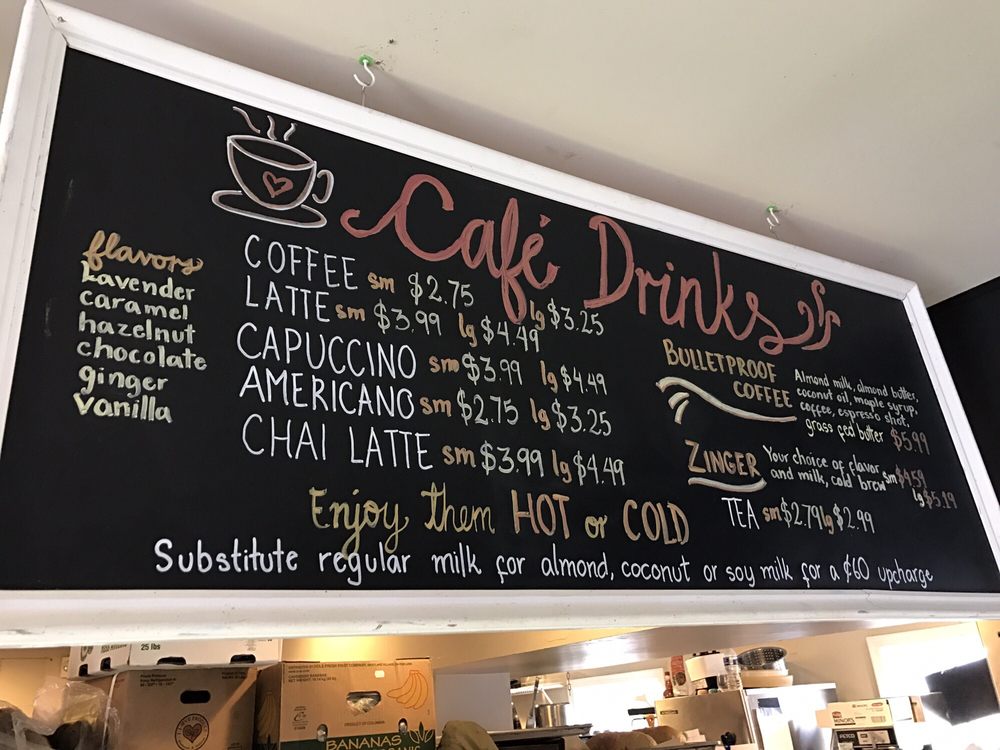 Café Drinks
flavors
Lavender
caramel
hazelnut
chocolate
ginger
Vanilla
COFFEE sm $2.75 lg $3.25
LATTE sm $3.99 lg $4.49
CAPUCCINO sm $3.99 lg $4.49
AMERICANO sm $2.75 lg $3.25
CHAI LATTE sm $3.99 lg $4.49
BULLETPROOF
COFFEE
Almond milk, almond butter,
coconut oil, maple syrup,
coffee, espresso shot,
grass fed butter $5.99
ZINGER
Your choice of flavor
and milk, cold brew
sm $4.59
lg $5.19
TEA sm $2.79 lg $2.99
Enjoy them HOT or COLD
Substitute regular milk for almond, coconut or soy milk for a ¢60 upcharge
25 lbs
PRODUCT OF COLOMBIA
BANANAS
ORGANIC
MINOR'S